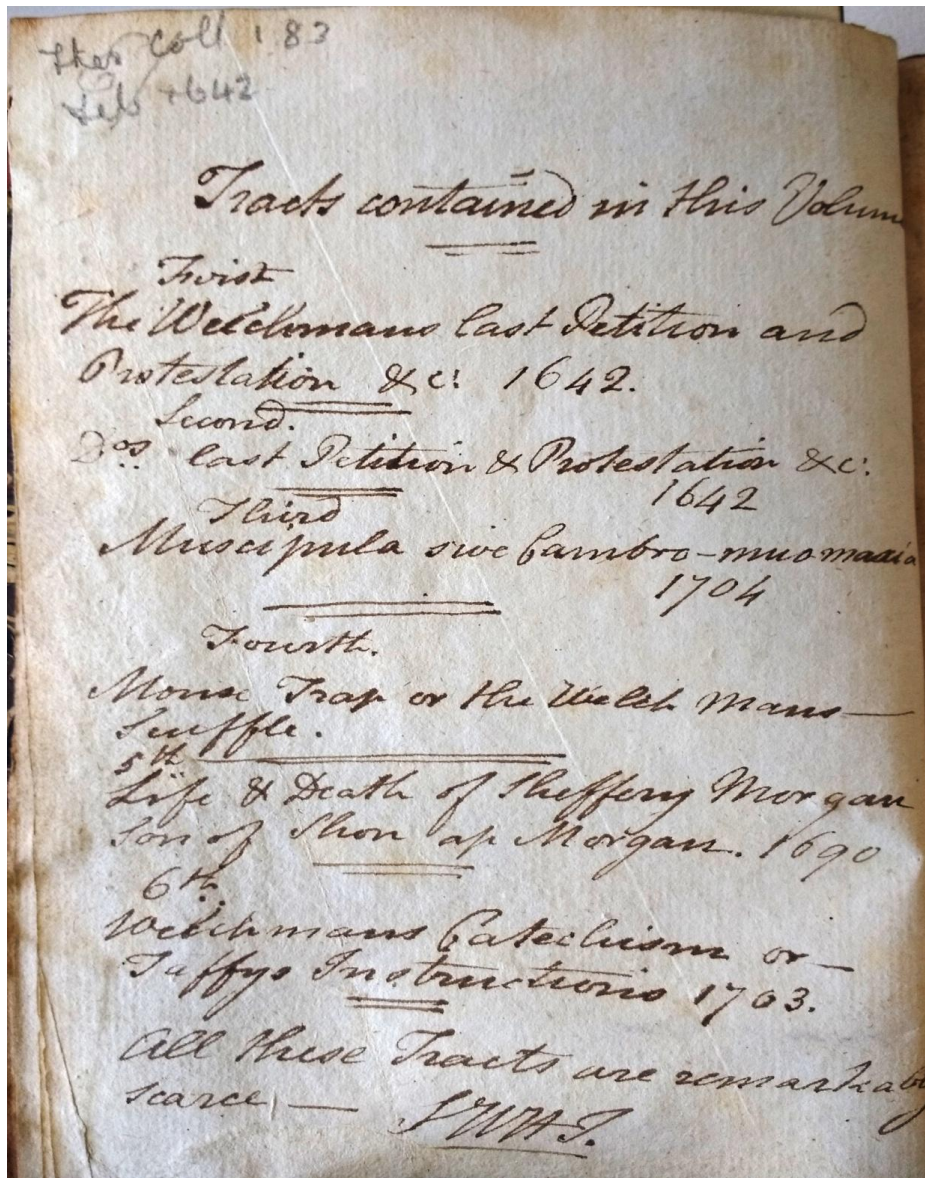 Coll 183
Feb 1642
Tracts contained in this Volum
First
The Welchmans last Petition and
Protestation &c: 1642.
Second.
Dos. last Petition & Protestation &c:
1642
Third
Muscipula sive Cambro-muomaxia
1704
Fourth.
Mouse Trap or the Welch Mans
Scuffle.
5th
Life & Death of Sheffery Morgan
Son of Shon ap Morgan. 1690
6th.
Welchmans Catechism or
Taffys Instructions 1763.
All these Tracts are remarkably
scarce —